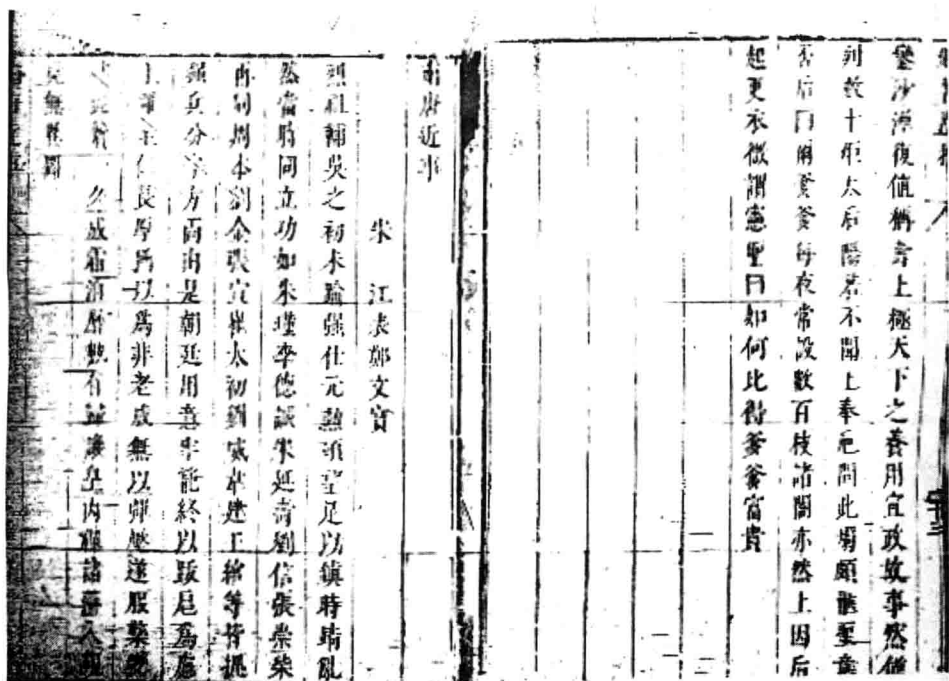 鑾沙漠復値稱壽上極天下之善用宣政故事然僅
列數十炬太后陽若不聞上奉巵問此燭頗愜聖意
否后曰爾爹爹每夜常設數百枝諸閤亦然上因后
起更衣微謂憲聖曰如何比得爹爹富貴
南唐近事
宋 江表鄭文寶
烈祖輔吳之初未踰強仕元勳碩望足以鎮時靖亂
然當時同立功如朱瑾李德誠朱延壽劉信張崇柴
再用周本劉金張宣崔太初劉威韋建王綰等皆握
強兵分守方面由是朝廷用意牢籠終以跋扈為慮
上雖至仁長厚猶以為非老成無以彈壓遂服藥
久成霜泊曆數有歸讓皇內禪諸藩入覲